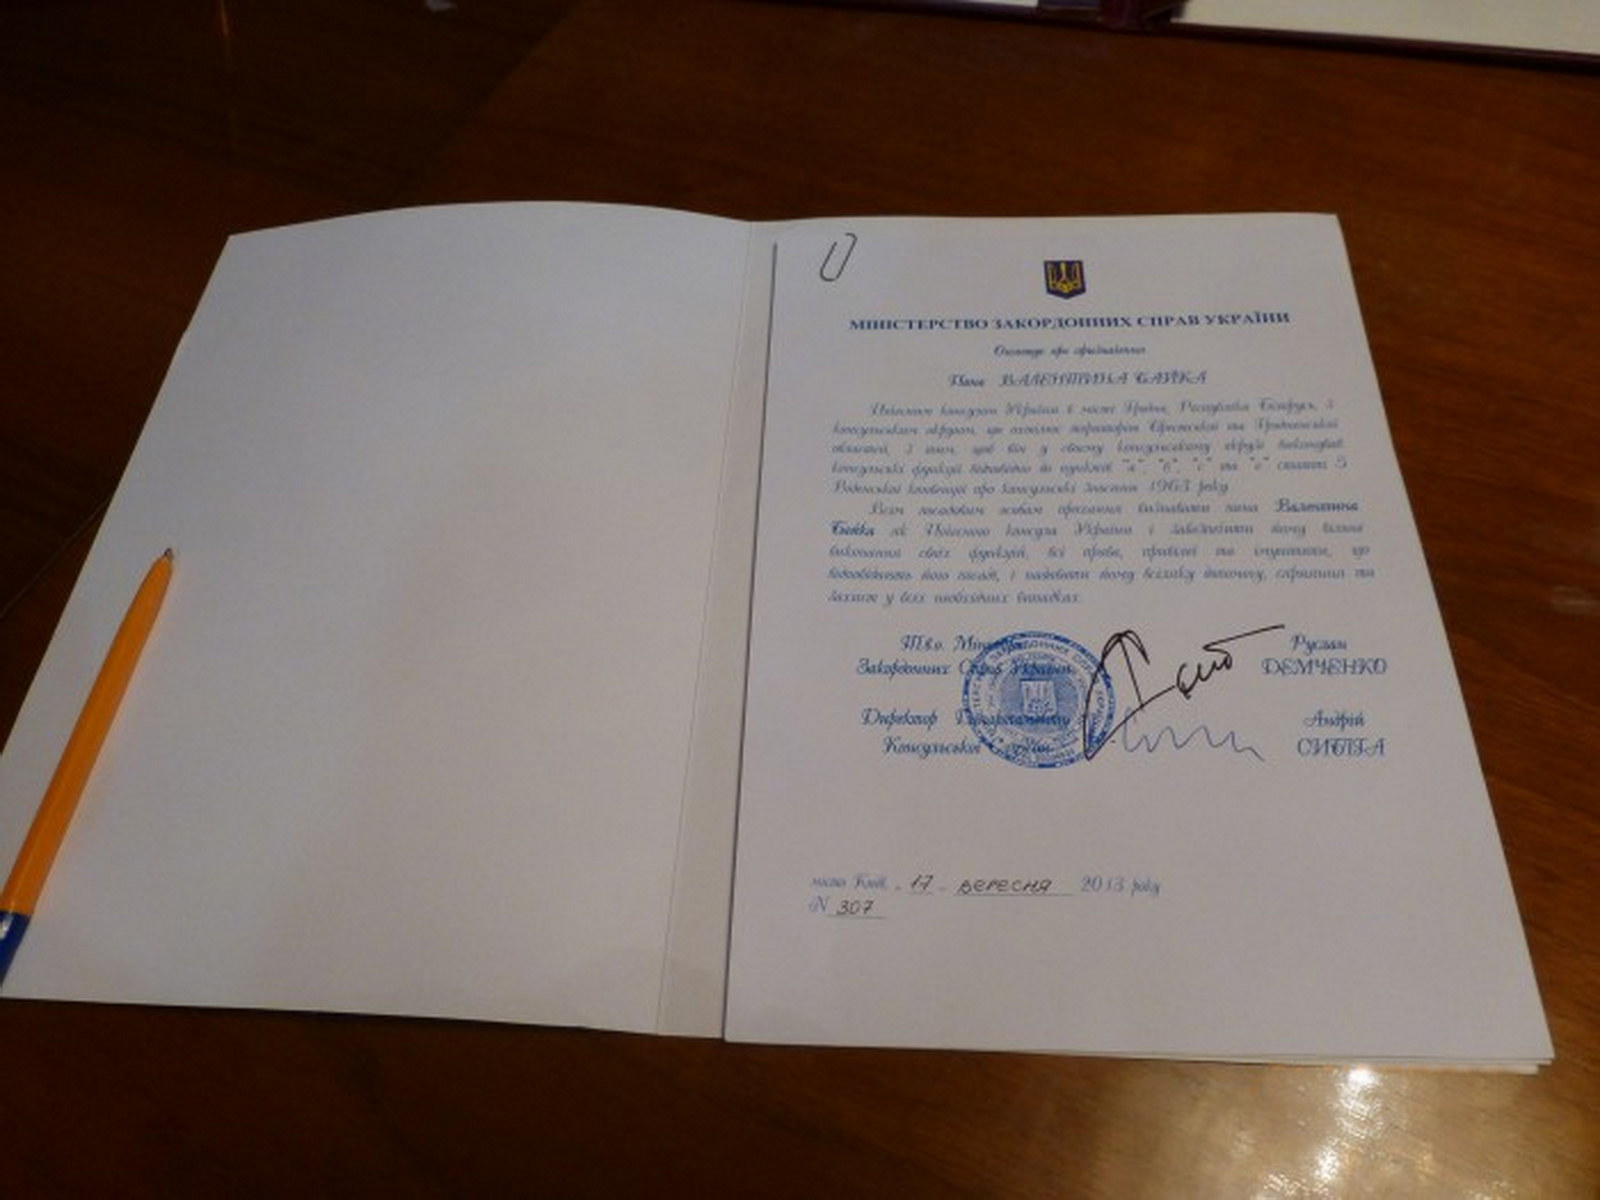 МІНІСТЕРСТВО ЗАКОРДОННИХ СПРАВ УКРАЇНИ
Оголошує про призначення
Пана ВАЛЕНТИНА БАЙКА
консулом України в місті Бресті, Республіка Білорусь, з
консульським округом, що охоплює територію Брестської та Гродненської
областей, з тим, щоб він у своєму консульському окрузі виконував
консульські функції відповідно до пунктів статті 5
Віденської конвенції про консульські зносини 1963 року
Всім посадовим особам прохання визнавати пана Валентина
Байка як консула України і забезпечити йому вільне
виконання своїх функцій, всі права, привілеї та імунітети, що
відповідають його посаді, і надавати йому всіляку допомогу, сприяння та
захист у всіх необхідних випадках.
Т.в.о. Міністра Руслан
Закордонних Справ України ДЕМЧЕНКО
Директор Департаменту Андрій
Консульської служби СИБІГА
місто Київ „ 17 „ вересня 2013 року
N 307